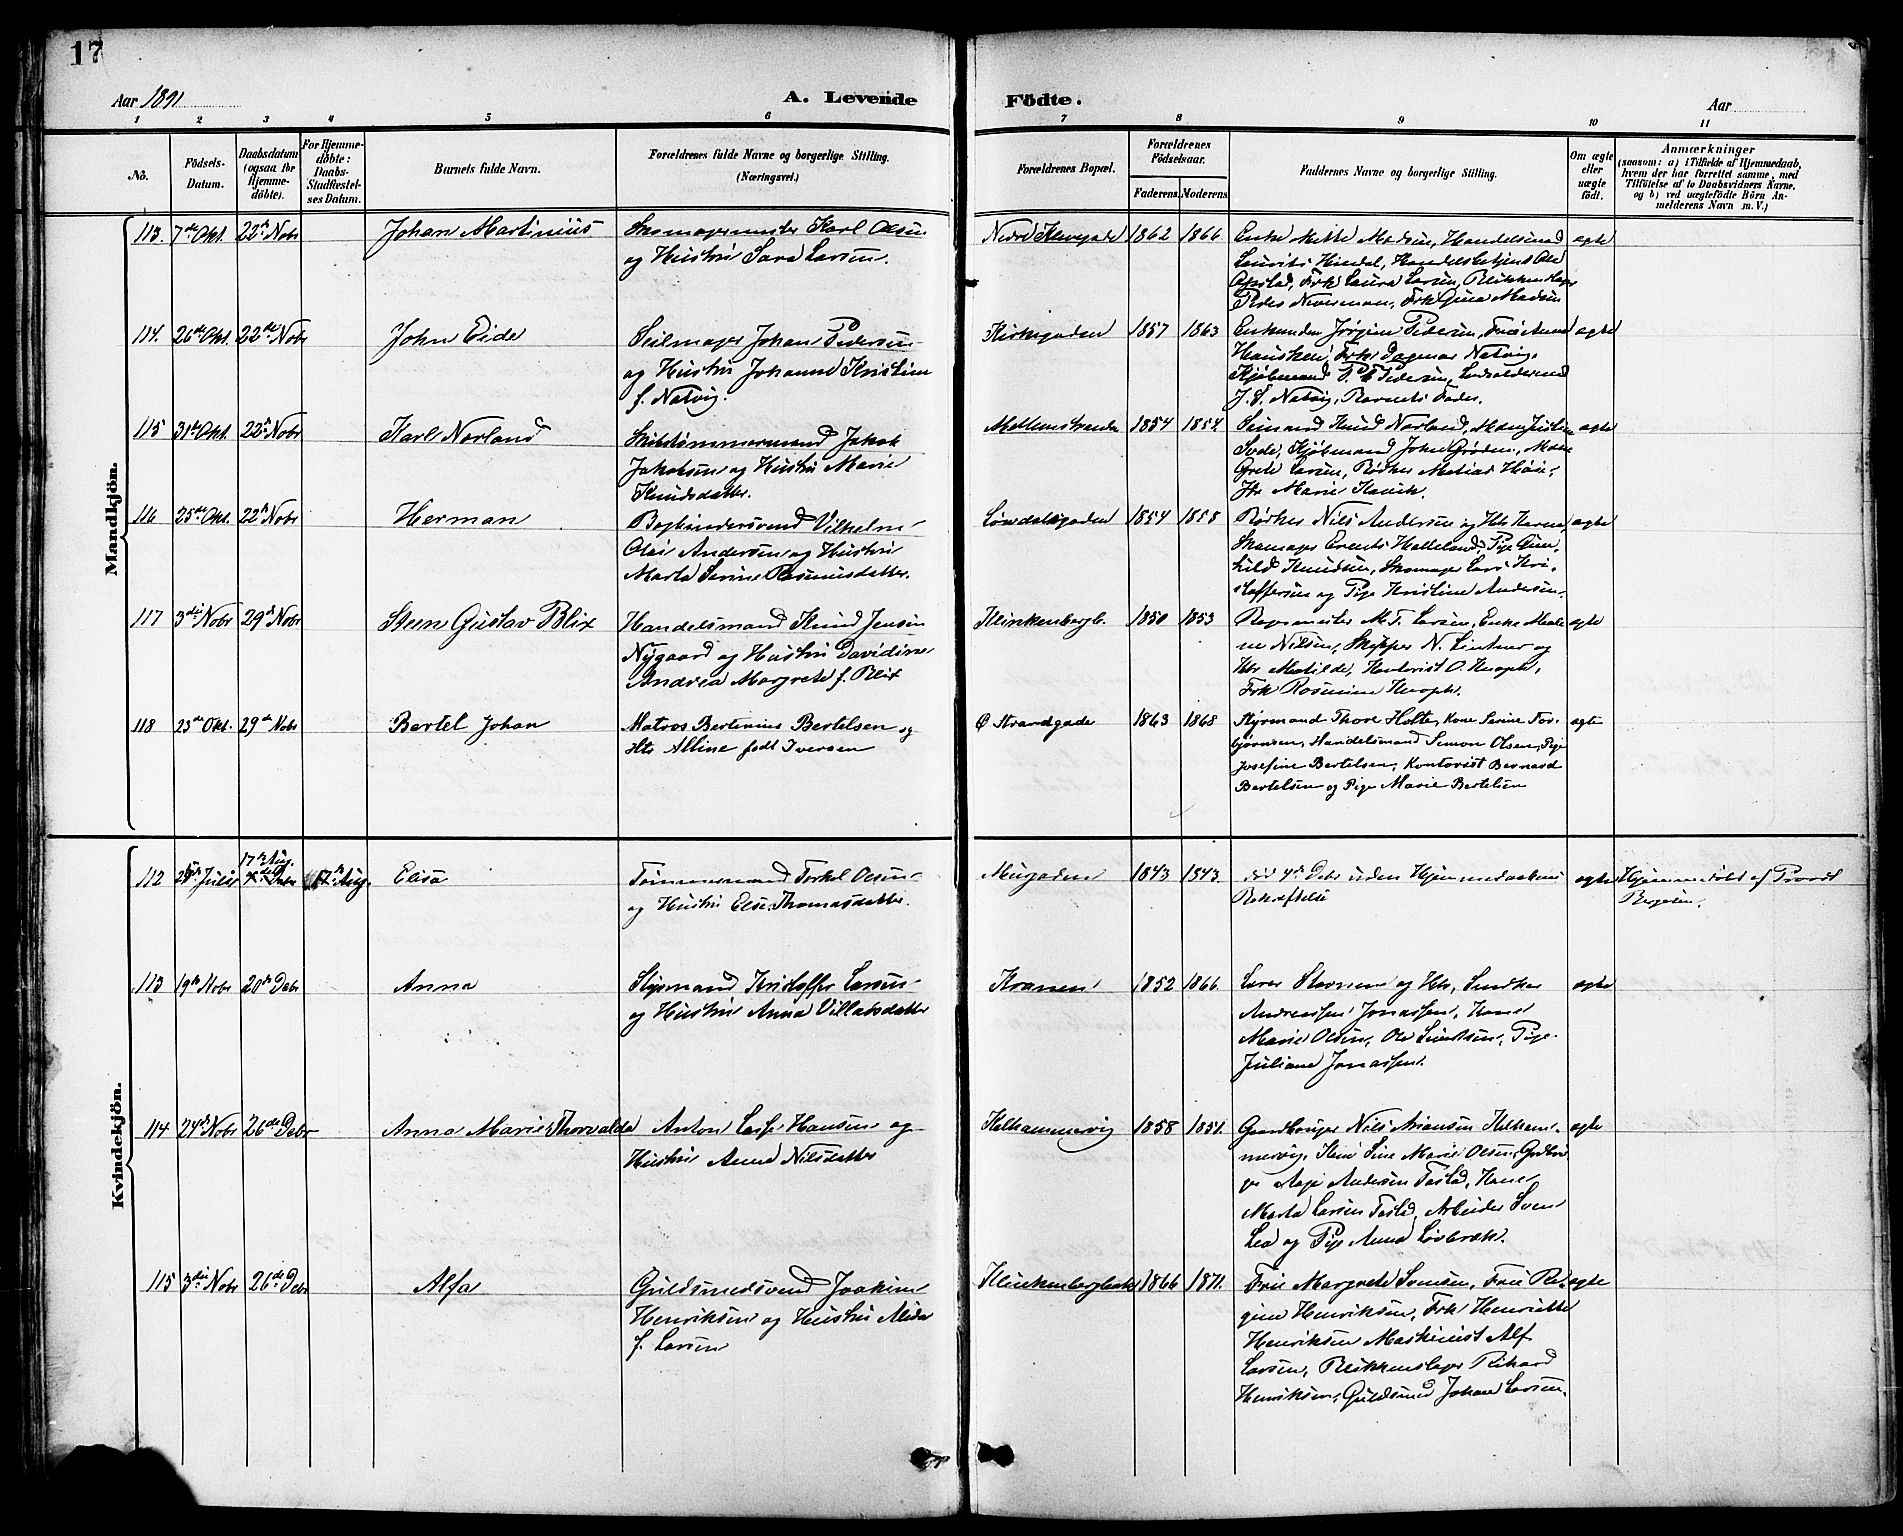 17
Aar 1891
A. Levende Födte.
Aar
1 2 3 4 5 6 7 8 9 10 11
No.
Födsels-Datum.
Daabsdatum (ogsaa for Hjemmedöbte).
For Hjemmedöbte: Daabs-Stadfæstelses Datum.
Barnets fulde Navn.
Forældrenes fulde Navne og borgerlige Stilling. (Næringsvei.)
Forældrenes Bopæl.
Forældrenes Födselsaar.
Faderens. Moderens.
Faddernes Navne og borgerlige Stilling.
Om ægte eller uægte födt.
Anmærkninger
(saasom: a) i Tilfælde af Hjemmedaab, hvem der har forrettet samme, med Tilföielse af to Daabsvidners Navne, og b) ved uægtefödte Börn Anmelderens Navn m. V.)
Mandkjön.
113. 7de Okt. 22de Nobr Johan Martinius
Skomagermester Karl Olsen
og Hustru Sara Larsen.
Nedre Klevegade 1862 1866
Enke Mette Madsen, Handelsmand
Laurits Hindal, Handelsbetjent Ole
Opstad, Frk Laura Larsen, Blikkenslager
Peder Neverman, Frk Gina Madsen
ægte
114. 26de Okt. 22de Nobr John Eide
Seilmager Johan Pedersen
og Hustru Johanne Kristine
f. Natvig.
Kirkegaden 1857 1863
Enkemden Jørgine Pedersen, Frøi
Hausken, Frk Dagmar Natvig,
Kjøbmand P. Pedersen,
J. S. Natvig, Barnets Fader.
ægte
115 31te Okt. 22de Nobr Karl Norland
Skibstømmermand Jakob
Jakobsen og Hustru Marie
Knudsdatter.
Mellemstranden 1854 1854.
Sømand Knud Norland,
Kjøbmand John Grøden,
Grete Larsen, Bødker Matias
Marie
ægte
116 25de Okt. 22de Nobr Herman
Bogbindersvend Vilhelm
Olai Andersen og Hustru
Marta Serine Rasmusdatter.
Løvdalsgaden 1854 1858
Bødker Nils Andersen og Htr Karen,
Skomager Helleland, Pige Gun-
hild Knudsen, Skomager Lars Kri-
stoffersen og Pige Kristine Andersen.
ægte
117 3die Nobr 29de Nobr Steen Gustav Blix
Handelsmand Knud Jensen
Nygaard og Hustru Davidine
Andrea Margrete f. Blix
Klinkenbergb. 1850 1853
M. T. Larsen, Enke Male-
ne Nilsen, Skipper N. Lintner og
Htr Matilde, Kontorist O.
Frk Rasmine
ægte
118 23de Okt. 29de Nobr Bertel Johan
Matros Bertinius Bertelsen og
Htr Alline født Iversen
Ø Strandgade 1863 1868
Styrmand Thore Holte, Kone Serine Tor-
bjørnsen, Handelsmand Simon Olsen, Pige
Josefine Bertelsen, Kontorist Bernard
Bertelsen og Pige Marie Bertelsen
ægte
Kvindekjön.
112 Juli 17de Aug. 17de Aug. Elisa
Tømmermand Torkel Olsen
og Hustru Else Thomasdatter.
Mugaden 1843 1843.
død 4de Debr uden Hjemmedaabens
Bekræftelse
ægte
Hjemmedøbt af Provst
Bergesen.
113 19de Nobr 20de Debr Anna
Styrmand Kristoffer Larsen
og Hustru Anna Villatsdatter
Kranen 1852 1866.
Lærer Stornes og Htr, Snedker
Andreassen Jonassen, Kone
Marie Olsen, Ole Knudsen, Pige
Juliane Jonassen.
ægte
114 24de Nobr 26de Debr Anna Marie Thorvalda
Anton Hansen og
Hustru Anna Nilsdatter
Kelhammervig 1858 1851.
Gaardbruger Nils Kelham-
mervig, Marie Olsen, Grdbru-
ger Aage Andersen Tasta, Kone
Marta Larsen Tasta, Arbeider Sven
Lea og Pige Anna Løvbræk.
ægte
115 3die Nobr 26de Debr Alfa
Guldsmedsvend Joakim
Henriksen og Hustru Alida
f. Larsen
Klinkenbergbak 1866 1871.
Frue Margrete Svensen, Frue Re-
gine Henriksen, Frk Henriette
Henriksen Maskinist Alf
Larsen, Blikkenslager Rikard
Henriksen, Guldsmed Johan Larsen.
ægte